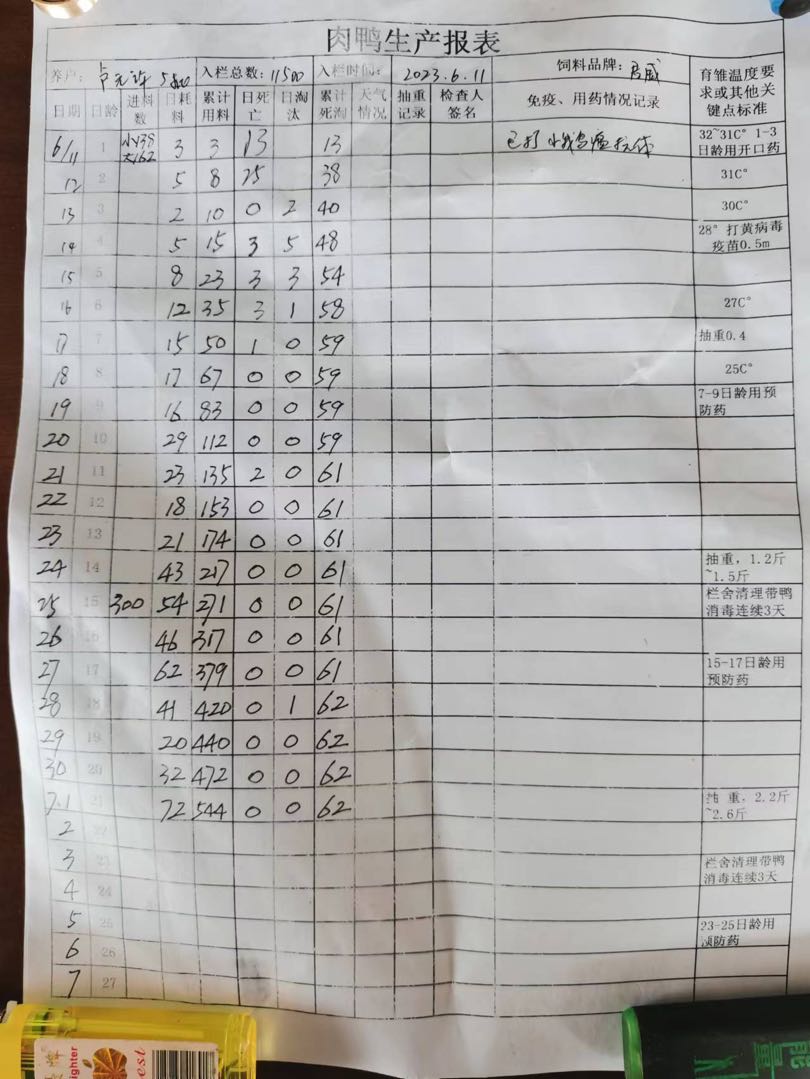 肉鸭生产报表
养户: 5800 入栏总数: 11500 入栏时间: 2023.6.11 饲料品牌: 育雏温度要求或其他关键点标准
日期 日龄 进料数 日耗料 累计用料 日死亡 日淘汰 累计死淘 天气情况 抽重记录 检查人签名 免疫、用药情况记录
6/11 1 小138 大162 3 3 13 13 已打 抗体 32~31C° 1-3日龄用开口药
12 2 5 8 25 38 31C°
13 3 2 10 0 2 40 30C°
14 4 5 15 3 5 48 28° 打黄病毒疫苗0.5m
15 5 8 23 3 3 54
16 6 12 35 3 1 58 27C°
17 7 15 50 1 0 59 抽重0.4
18 8 17 67 0 0 59 25C°
19 9 16 83 0 0 59 7-9日龄用预防药
20 10 29 112 0 0 59
21 11 23 135 2 0 61
22 12 18 153 0 0 61
23 13 21 174 0 0 61
24 14 43 217 0 0 61 抽重, 1.2斤~1.5斤
25 15 300 54 271 0 0 61 栏舍清理带鸭消毒连续3天
26 16 46 317 0 0 61
27 17 62 379 0 0 61 15-17日龄用预防药
28 18 41 420 0 1 62
29 19 20 440 0 0 62
30 20 32 472 0 0 62
7.1 21 72 544 0 0 62 抽 重, 2.2斤~2.6斤
2 22
3 23 栏舍清理带鸭消毒连续3天
4 24
5 25 23-25日龄用预防药
6 26
7 27
ighter
est
能量